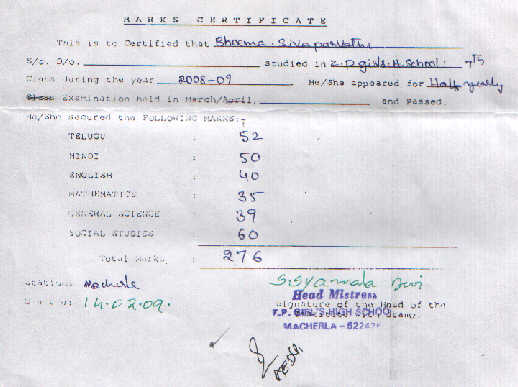 MARKS CERTIFICATE
This is to Certified that Bhooma. Sivaparvathi
S/o. D/o. studied in Z.P girls.H.School. 7th
Class during the year 2008-09 He/She appeared for Half yearly
Class Examination held in March/April, and Passed.
He/She secured the FOLLOWING MARKS:
TELUGU : 52
HINDI : 50
ENGLISH : 40
MATHEMATICS : 35
GENERAL SCIENCE : 39
SOCIAL STUDIES : 60
Total Marks : 276
Station: Macherla
Date: 14.02.09.
S.Syamala Devi
Head Mistress
Signature of the Head of the
GIRL'S HIGH SCHOOL
MACHERLA